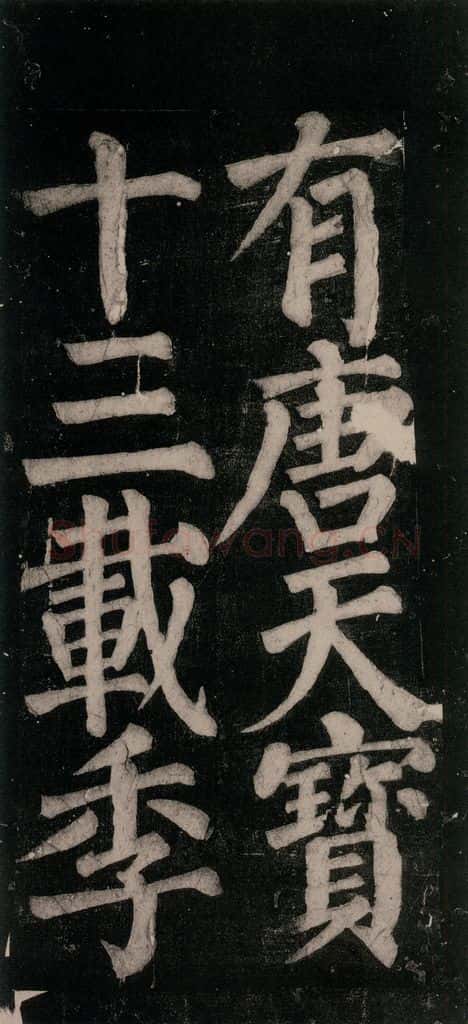 有唐天寶
十三載季
Shufawang.CN